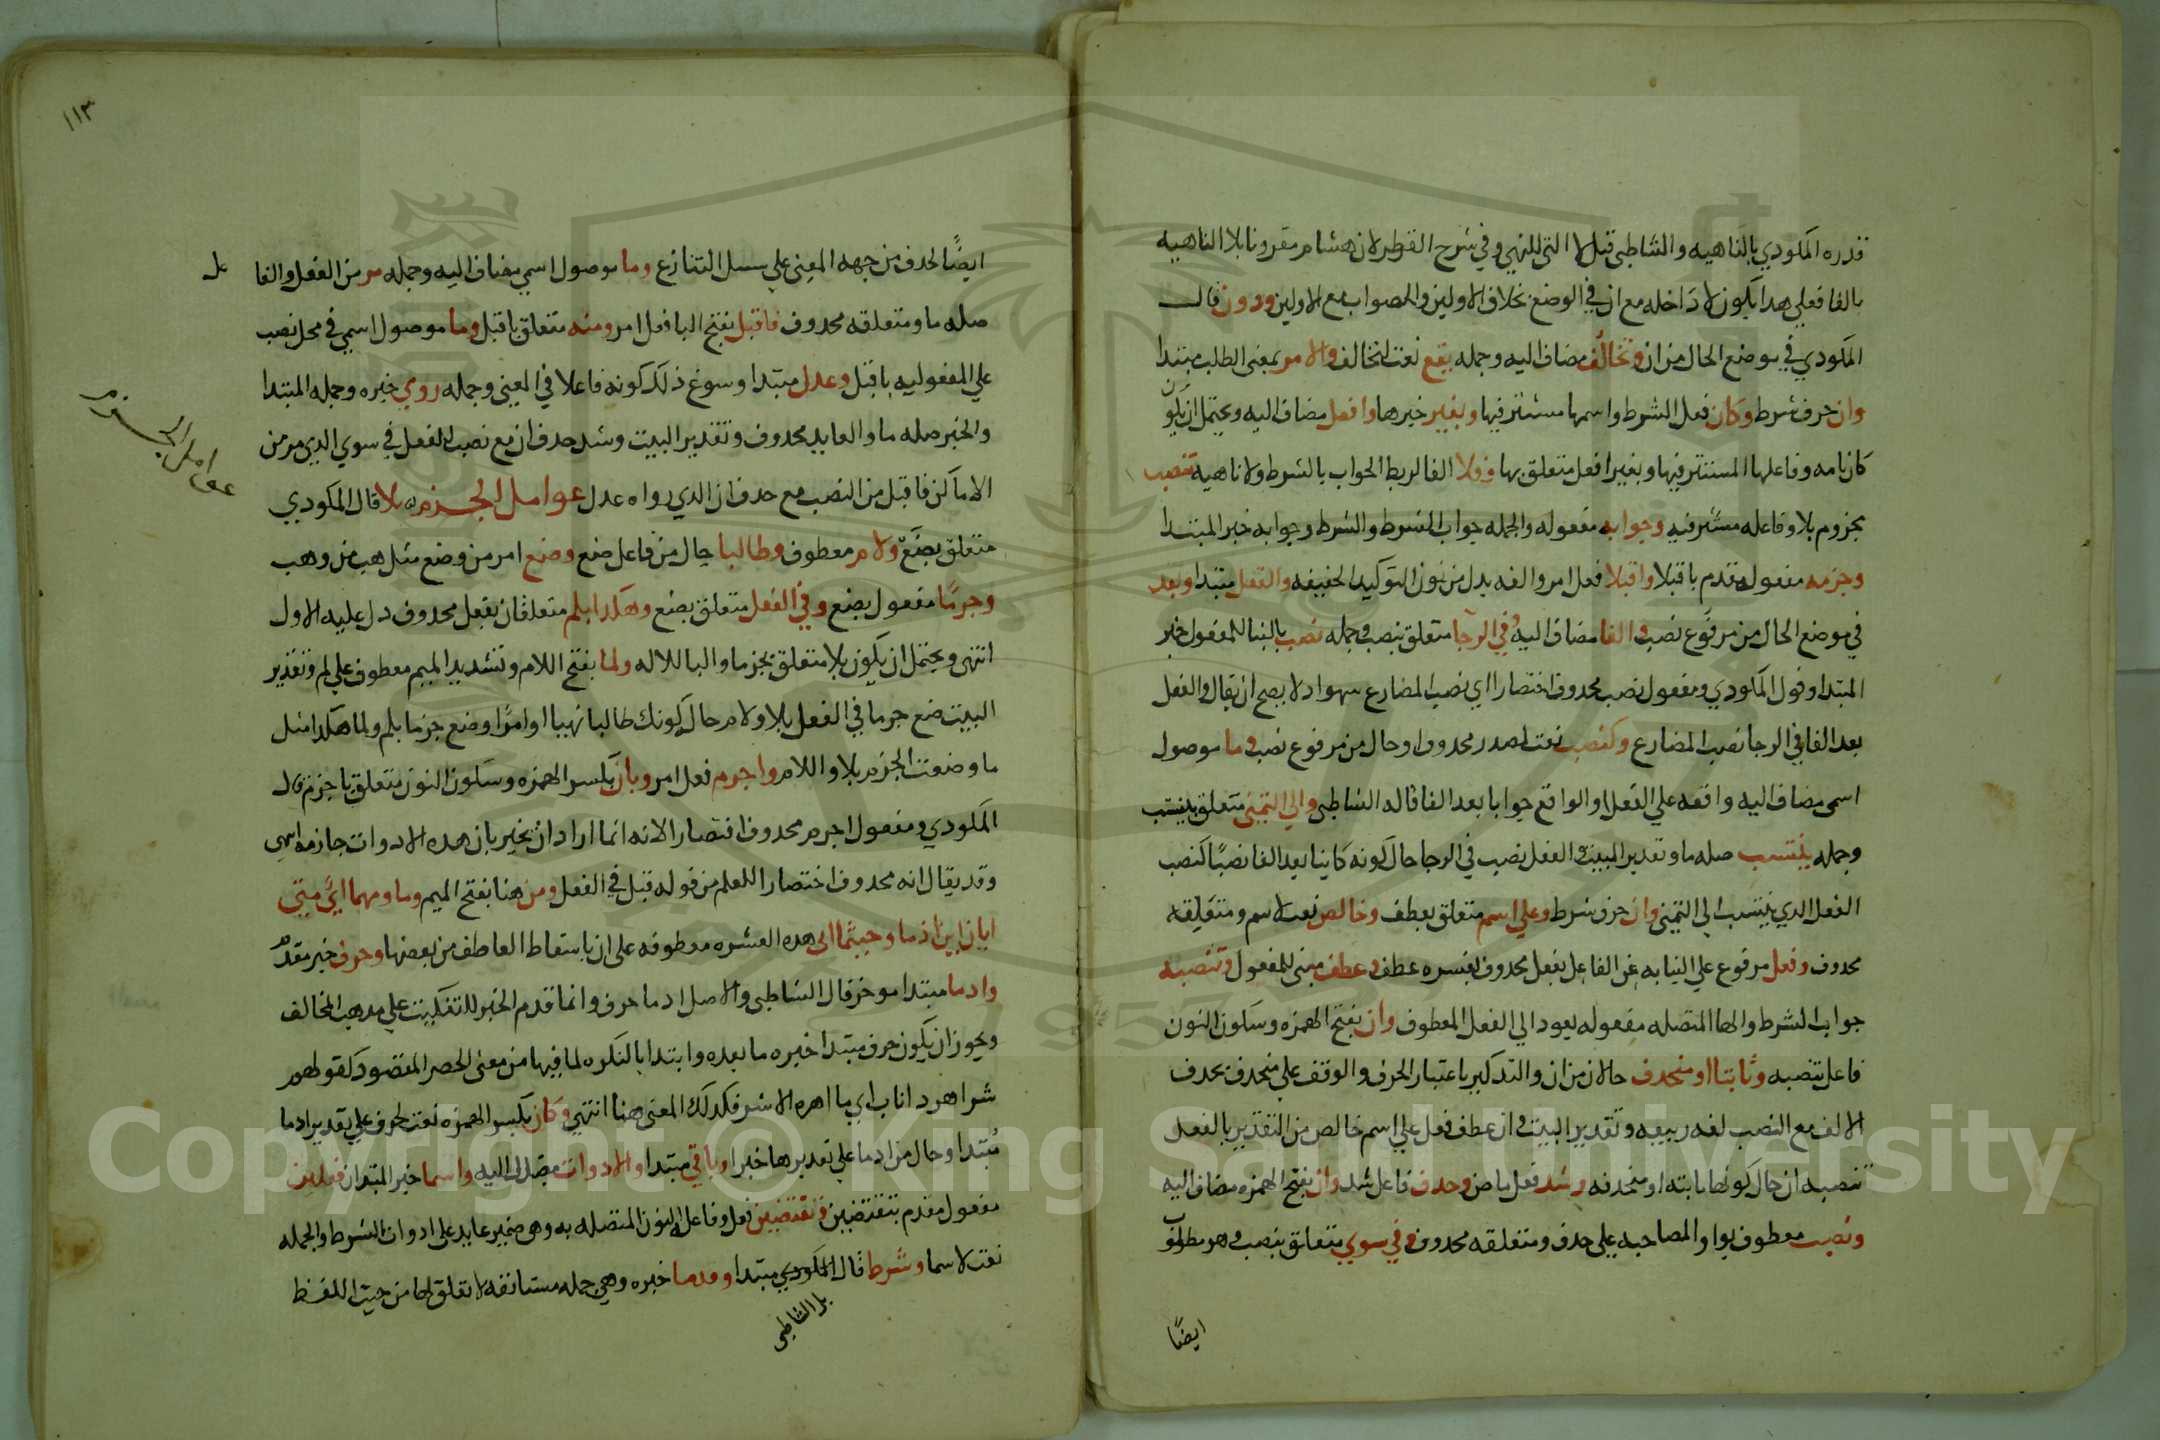 قدره المكودي بالناهيه والشاطبي قبل لا التي للنهي وفي شرح القطر لابن هشام مقرونا بلا الناهيه
بالفا فعلي هدا يكون لا داخله مع ان في الوضع بخلاف الاولين والصواب مع الاولين ودون قال
المكودي في موضع الحال من ان وتخالف مضاف اليه وجمله يقع نعت لتخالف والامر بمعنى الطلب مبتدا
وان حرف شرط وكان فعل الشرط واسمها مستتر فيها وبغير خبرها وافعل مضاف اليه ويحتمل ان يكون
كان تامه وفاعلها المستتر فيها وبغير افعل متعلق بها فلا الفا لربط الجواب بالشرط ولا ناهيه تنصب
مجزوم بلا وفاعله مستتر فيه وجوابه مفعوله والجمله جواب الشرط والشرط وجوابه خبر المبتدا
وجزمه مفعول مقدم باقبلا واقبلا فعل امر والفه بدل من نون التوكيد الخفيفه والفعل مبتدا وبعد
في موضع الحال من مرفوع نصب والفا مضاف اليه وفي الرجا متعلق بنصب وجمله نصب بالبنا للمفعول خبر
المبتدا وقول المكودي ومفعول نصب محدوف اختصارا اي نصب المضارع سهو اد لا يصح ان يقال والفعل
بعد الفا في الرجا نصب المضارع وكنصب نعت لمصدر محدوف او حال من مرفوع نصب وما موصول
اسمي مضاف اليه واقعه علي الفعل او الواقع جوابا بعد الفا قاله الشاطبي والي التمني متعلق بينتسب
وجمله ينتسب صله ما وتقدير البيت والفعل نصب في الرجا حال كونه كاينا بعد الفا نصبا كنصب
الفعل الدي ينتسب الي التمني وان حرف شرط وعلي اسم متعلق بعطف وخالص نعت لاسم ومتعلقه
محدوف وفعل مرفوع علي النيابه عن الفاعل بفعل محدوف يفسره عطف وعطف مبني للمفعول وتنصبه
جواب الشرط والها المتصله مفعوله يعود الي الفعل المعطوف وان بفتح الهمزه وسكون النون
فاعل تنصبه وثابتا او منحدف حالان من ان والتدكير باعتبار الحرف والوقف علي منحدف بحدف
الالف مع النصب لغه ربيعه وتقدير البيت وان عطف فعل علي اسم خالص من التقدير بالفعل
تنصبه ان حال كونها ثابته او منحدفه وشد فعل ماض وحدف فاعل شد وان بفتح الهمزه مضاف اليه
ونصب معطوف بواو المصاحبه علي حدف ومتعلقه محدوف وفي سوي متعلق بنصب وهو مطلوب
ايضًا
١١٣
ايضًا لحدف من جهه المعني علي سبيل التنازع وما موصول اسمي مضاف اليه وجمله مر من الفعل والفاعل
صله ما ومتعلقه محدوف فاقبل بفتح البا فعل امر ومنه متعلق باقبل وما موصول اسمي في محل نصب
علي المفعوليه باقبل وعدل مبتدا وسوغ ذلك كونه فاعلا في المعني وجمله روي خبره وجمله المبتدا
والخبر صله ما والعايد محدوف وتقدير البيت وشد حدف ان مع نصب الفعل في سوي الدي مر من
الاماكن فاقبل من النصب مع حدف ان الدي رواه عدل عوامل الجزم بلا قال المكودي
عوامل الجزم
متعلق بضع ولام معطوف وطالبا حال من فاعل ضع وضع امر من وضع مثل هب من وهب
وجزمًا مفعول بضع وفي الفعل متعلق بضع وهكدا بلم متعلقان بفعل محدوف دل عليه الاول
انتهي ويحتمل ان يكون بلا متعلق بجزما والبا للاله ولما بفتح اللام وتشديد الميم معطوف علي لم وتقدير
البيت ضع جزما في الفعل بلا ولام حال كونك طالبا نهيا او امرًا وضع جزما بلم ولما هكدا مثل
ما وضعت الجزم بلا واللام واجزم فعل امر وبان بكسر الهمزه وسكون النون متعلق باجزم قال
المكودي ومفعول اجزم محدوف اقتصارا لانه انما اراد ان يخبر بان هده الادوات جازمه انتهي
وقد يقال انه محدوف اختصارا للعلم من قوله قبل في الفعل ومن هنا بفتح الميم وما ومهما اي متى
ايان اين اذما وحيثما انى هده العشره معطوفه على ان باسقاط العاطف من بعضها وحرف خبر مقدم
وادما مبتدا موخر قال الشاطبي والاصل ادما حرف وانما قدم الخبر للتنكيت علي مدهب المخالف
ويجوز ان يكون حرف مبتدا خبره ما بعده وابتدا بالنكره لما فيها من معنى الحصر المقصود كقولهم
شر اهر دا ناب اي ما اهره الا شر فكدلك المعنى هنا انتهي وكان بكسر الهمزه نعت لحرف علي تقدير ادما
مبتدا وحال من ادما علي تقديرها خبرا وباقي مبتدا والادوات مضاف اليه واسما خبر المبتدا فعلين
مفعول مقدم بتقتضين وتقتضين فعل وفاعل والنون المتصله به وهي ضمير عايد على ادوات الشرط والجمله
نعت لاسما وشرط قال المكودي مبتدا وقدما خبره وهي جمله مستانفه لا تعلق لها من حيث اللفظ
بل الشاطبي
Copyright © King Saud University
1957